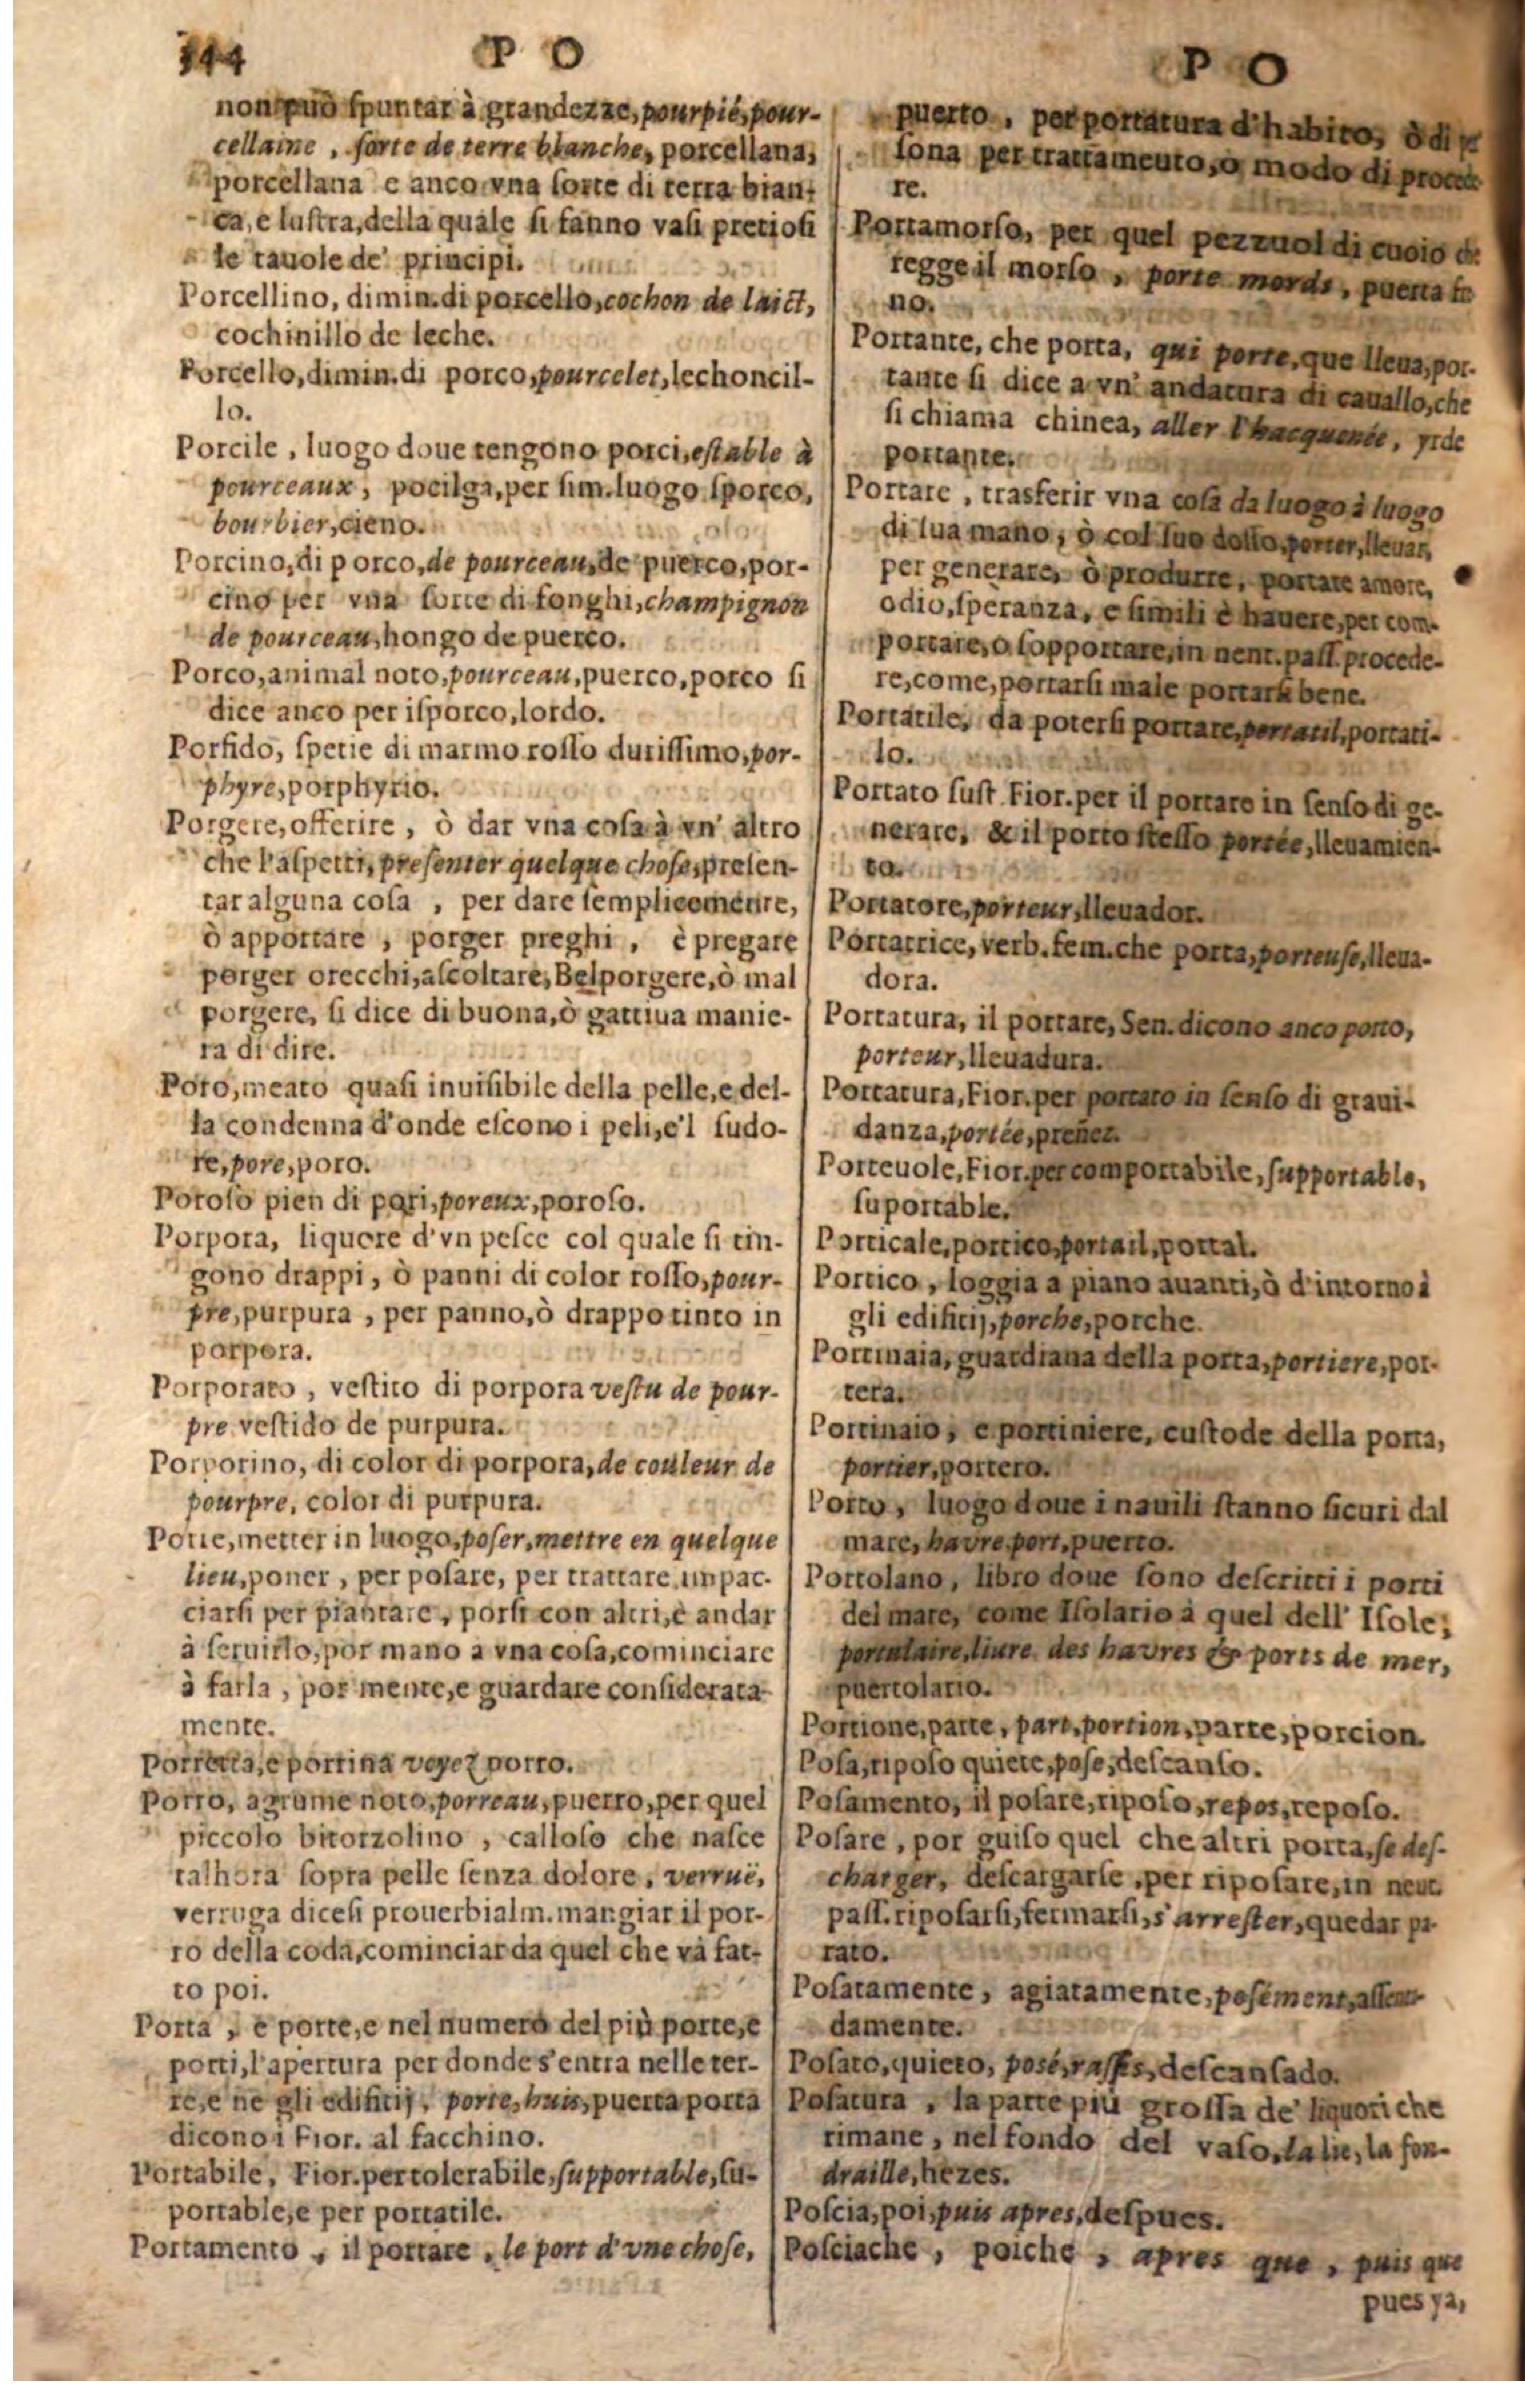 344 P O
non può ſpuntar à grandezze, pourpié, pour-
cellaine, ſorte de terre blanche, porcellana,
porcellana e anco vna ſorte di terra bian-
ca, e luſtra, della quale ſi fanno vaſi pretioſi
le tauole de' principi.
Porcellino, dimin. di porcello, cochon de laict,
cochinillo de leche.
Porcello, dimin. di porco, pourcelet, lechoncil-
lo.
Porcile, luogo doue tengono porci, eſtable à
pourceaux, pocilga, per ſim. luogo ſporco,
bourbier, cieno.
Porcino, di porco, de pourceau, de puerco, por-
cino per vna ſorte di fonghi, champignon
de pourceau, hongo de puerco.
Porco, animal noto, pourceau, puerco, porco ſi
dice anco per iſporco, lordo.
Porfido, ſpetie di marmo roſſo duriſſimo, por-
phyre, porphyrio.
Porgere, offerire, ò dar vna coſa à vn' altro
che l'aſpetti, preſenter quelque choſe, preſen-
tar alguna coſa, per dare ſemplicemente,
ò apportare, porger preghi, è pregare
porger orecchi, aſcoltare, Belporgere, ò mal
porgere, ſi dice di buona, ò gattiua manie-
ra di dire.
Poro, meato quaſi inuiſibile della pelle, e del-
la condenna d'onde eſcono i peli, e'l ſudo-
re, pore, poro.
Poroſo pien di pori, poreux, poroſo.
Porpora, liquore d'vn peſce col quale ſi tin-
gono drappi, ò panni di color roſſo, pour-
pre, purpura, per panno, ò drappo tinto in
porpora.
Porporato, veſtito di porpora veſtu de pour-
pre veſtido de purpura.
Porporino, di color di porpora, de couleur de
pourpre, color di purpura.
Porre, metter in luogo, poſer, mettre en quelque
lieu, poner, per poſare, per trattare impac-
ciarſi per piantare, porſi con altri, è andar
à ſeruirlo, por mano a vna coſa, cominciare
à farla, por mente, e guardare conſiderata-
mente.
Porretta, e porrina voyez porro.
Porro, agrume noto, porreau, puerro, per quel
piccolo bitorzolino, calloſo che naſce
talhora ſopra pelle ſenza dolore, verruë,
verruga diceſi prouerbialm. mangiar il por-
ro della coda, cominciar da quel che và fat-
to poi.
Porta, e porte, e nel numero del più porte, e
porti, l'apertura per donde s'entra nelle ter-
re, e ne gli edifitij, porte, huis, puerta porta
dicono i Fior. al facchino.
Portabile, Fior. per tolerabile, ſupportable, ſu-
portable, e per portatile.
Portamento, il portare, le port d'vne choſe,
P O
puerto, per portatura d'habito, ò di per
ſona per trattamento, o modo di procede
re.
Portamorſo, per quel pezzuol di cuoio che
regge il morſo, porte mords, puerta fre
no.
Portante, che porta, qui porte, que lleua, por-
tante ſi dice a vn' andatura di cauallo, che
ſi chiama chinea, aller l'hacquenée, yr de
portante.
Portare, trasferir vna coſa da luogo à luogo
di ſua mano, ò col ſuo doſſo, porter, lleuar,
per generare, ò produrre, portare amore,
odio, ſperanza, e ſimili è hauere, per com-
portare, o ſopportare, in neut. paſſ. procede-
re, come, portarſi male portarſi bene.
Portatile, da poterſi portare, portatil, portati-
lo.
Portato ſuſt. Fior. per il portare in ſenſo di ge-
nerare, & il porto ſteſſo portée, lleuamien-
to.
Portatore, porteur, lleuador.
Portatrice, verb. fem. che porta, porteuſe, lleua-
dora.
Portatura, il portare, Sen. dicono anco porto,
porteur, lleuadura.
Portatura, Fior. per portato in ſenſo di graui-
danza, portée, preñez.
Porteuole, Fior. per comportabile, ſupportable,
ſuportable.
Porticale, portico, portail, portal.
Portico, loggia a piano auanti, ò d'intorno à
gli edifitij, porche, porche.
Portinaia, guardiana della porta, portiere, por-
tera.
Portinaio, e portiniere, cuſtode della porta,
portier, portero.
Porto, luogo doue i nauili ſtanno ſicuri dal
mare, havre, port, puerto.
Portolano, libro doue ſono deſcritti i porti
del mare, come Iſolario à quel dell' Iſole;
portulaire, liure des havres & ports de mer,
puertolario.
Portione, parte, part, portion, parte, porcion.
Poſa, ripoſo quiete, poſe, deſcanſo.
Poſamento, il poſare, ripoſo, repos, repoſo.
Poſare, por guiſo quel che altri porta, ſe deſ-
charger, deſcargarſe, per ripoſare, in neut.
paſſ. ripoſarſi, fermarſi, s'arreſter, quedar pa-
rato.
Poſatamente, agiatamente, poſément,
damente.
Poſato, quieto, posé, raſſis, deſcanſado.
Poſatura, la parte più groſſa de' liquori che
rimane, nel fondo del vaſo, la lie, la fon-
draille, hezes.
Poſcia, poi, puis apres, deſpues.
Poſciache, poiche, apres que, puis que
pues ya,